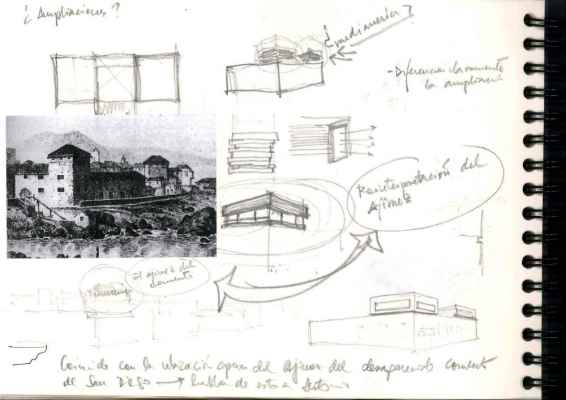 ¿Ampliaciones?
¿medianería?
- Diferenciar claramente
la ampliación
Reinterpretación del
Ajimez
El ajimez del
convento
Coincide con la ubicación del Ajimez del desaparecido convento
de San Diego → hablar de esto a Antonio